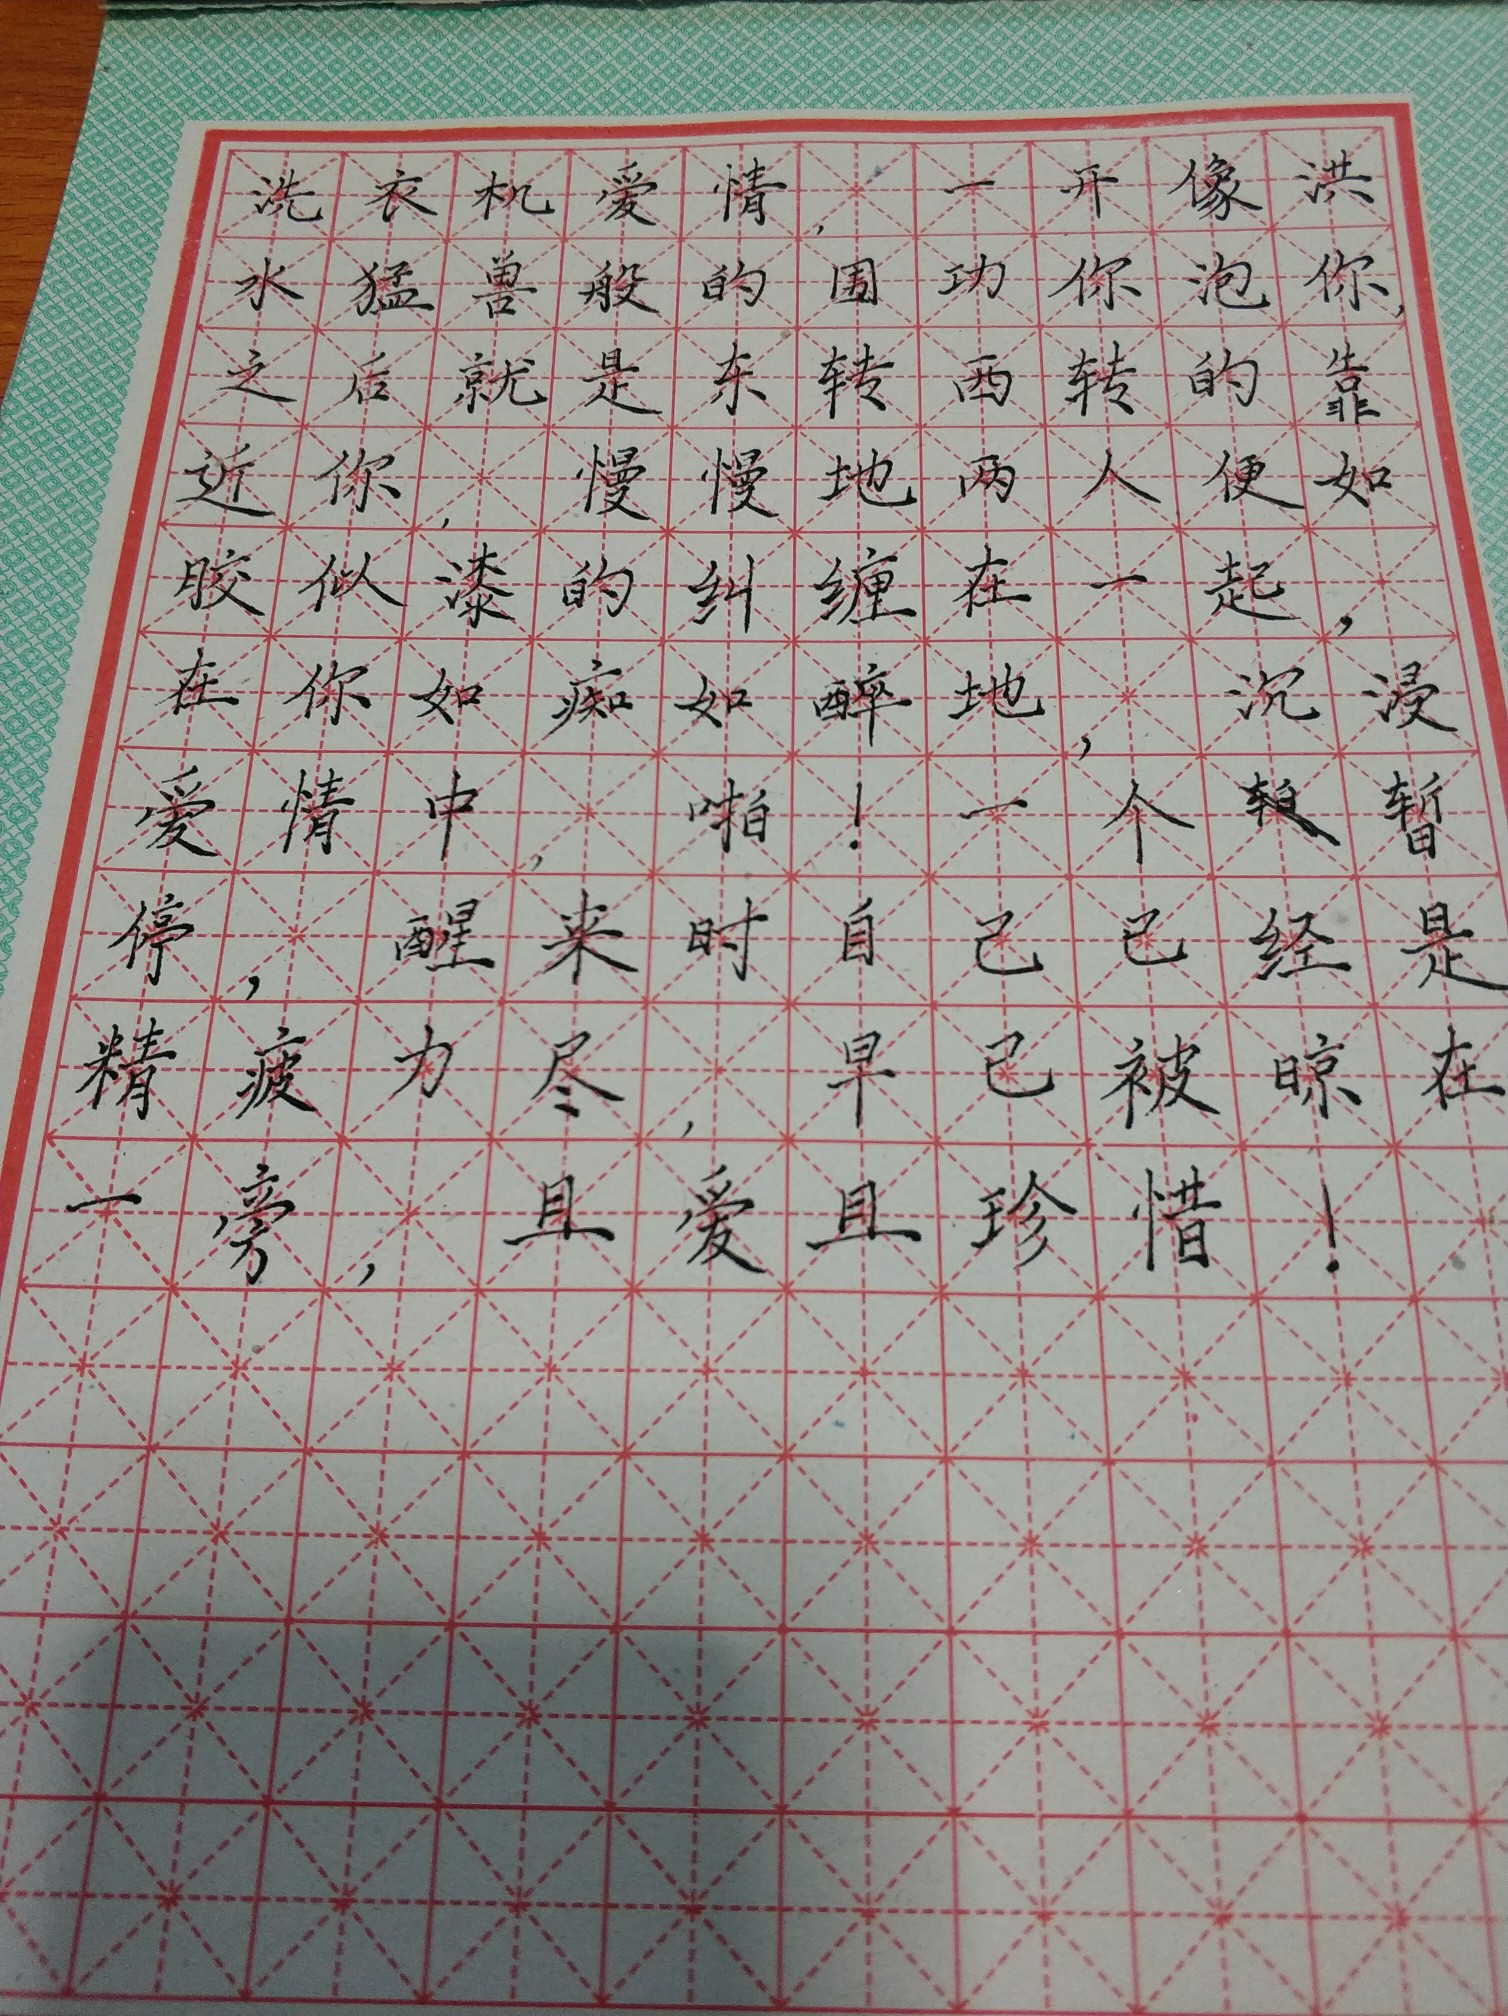 洗衣机爱情，一开像洪
水猛兽般的围功你泡你，
之后就是东转西转的靠
近你，慢慢地两人便如
胶似漆的纠缠在一起，
在你如痴如醉地，沉浸
爱情中，啪！一个暂
停，醒来时自己已经是
精疲力尽，早已被晾在
一旁，且爱且珍惜！